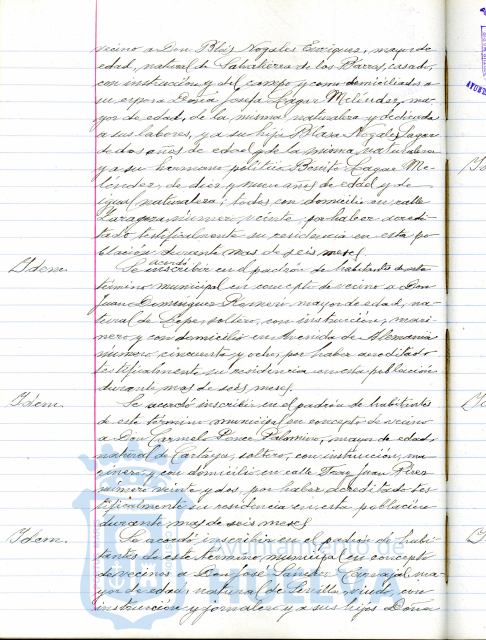 vecino a Don Blas Nogales Enriquez, mayor de
edad, natural de Salvatierra de los Barros, casado,
con instrucción y del campo y con domiciliados a
su esposa Doña Josefa Lagar Melendez, ma-
yor de edad, de la misma naturaleza y dedicada
a sus labores, y a su hijo Blas Nogales Lagar
de dos años de edad y de la misma naturaleza
y a su hermano politico Benito Lagar Me-
lendez, de diez y nueve años de edad y de
igual naturaleza; todos con domicilio en calle
Zaragoza, número veinte, por haber acredi-
tado testificalmente su residencia en esta po-
blación durante mas de seis meses
Idem. Se acordó inscribir en el padrón de habitantes de este
término municipal en concepto de vecino a Don
Juan Dominguez Romero mayor de edad, na-
tural de Lepe, soltero, con instrucción, mari-
nero y con domicilio en Avenida de Alemania
número cincuenta y ocho, por haber acreditado
testificalmente su residencia en esta población
durante mas de seis meses.
Idem. Se acordó inscribir en el padrón de habitantes
de este término municipal en concepto de vecino
a Don Carmelo Ponce Palomino, mayor de edad
natural de Cartaya, soltero, con instrucción, ma-
rinero y con domicilio en calle Fray Juan Pérez
número veinte y dos, por haber acreditado tes-
tificalmente su residencia en esta población
durante mas de seis meses
Idem. Se acordó inscribir en el padrón de habi-
tantes de este término municipal en concepto
de vecinos a Don José Sánchez Carvajal ma-
yor de edad, natural de Sevilla, viudo, con
instrucción y jornalero y a sus hijos Doña